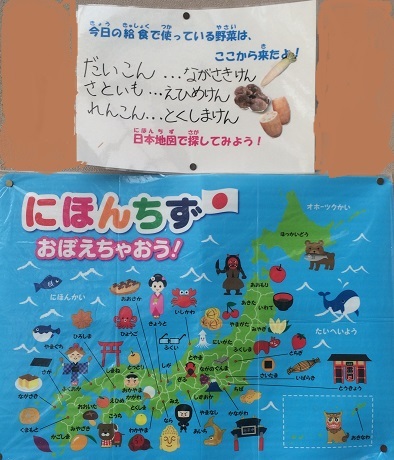 今日の給食で使っている野菜は、
ここから来たよ！
だいこん…ながさきけん
さといも…えひめけん
れんこん…とくしまけん
日本地図で探してみよう！
にほんちず
おぼえちゃおう！
オホーツクかい
ほっかいどう
にほんかい
おおさか
きょうと
いしかわ
あおもり
あきた
いわて
やまがた
みやぎ
たいへいよう
やまぐち
ひろしま
ひょうご
ふくい
とやま
にいがた
とちぎ
さが
ふくおか
しまね
とっとり
おかやま
しが
ぎふ
ながの
ぐんま
さいたま
いばらき
とうきょう
ながさき
おおいた
えひめ
かがわ
とくしま
しずおか
かながわ
ちば
くまもと
みやざき
こうち
わかやま
なら
みえ
あいち
やまなし
かごしま
おきなわ